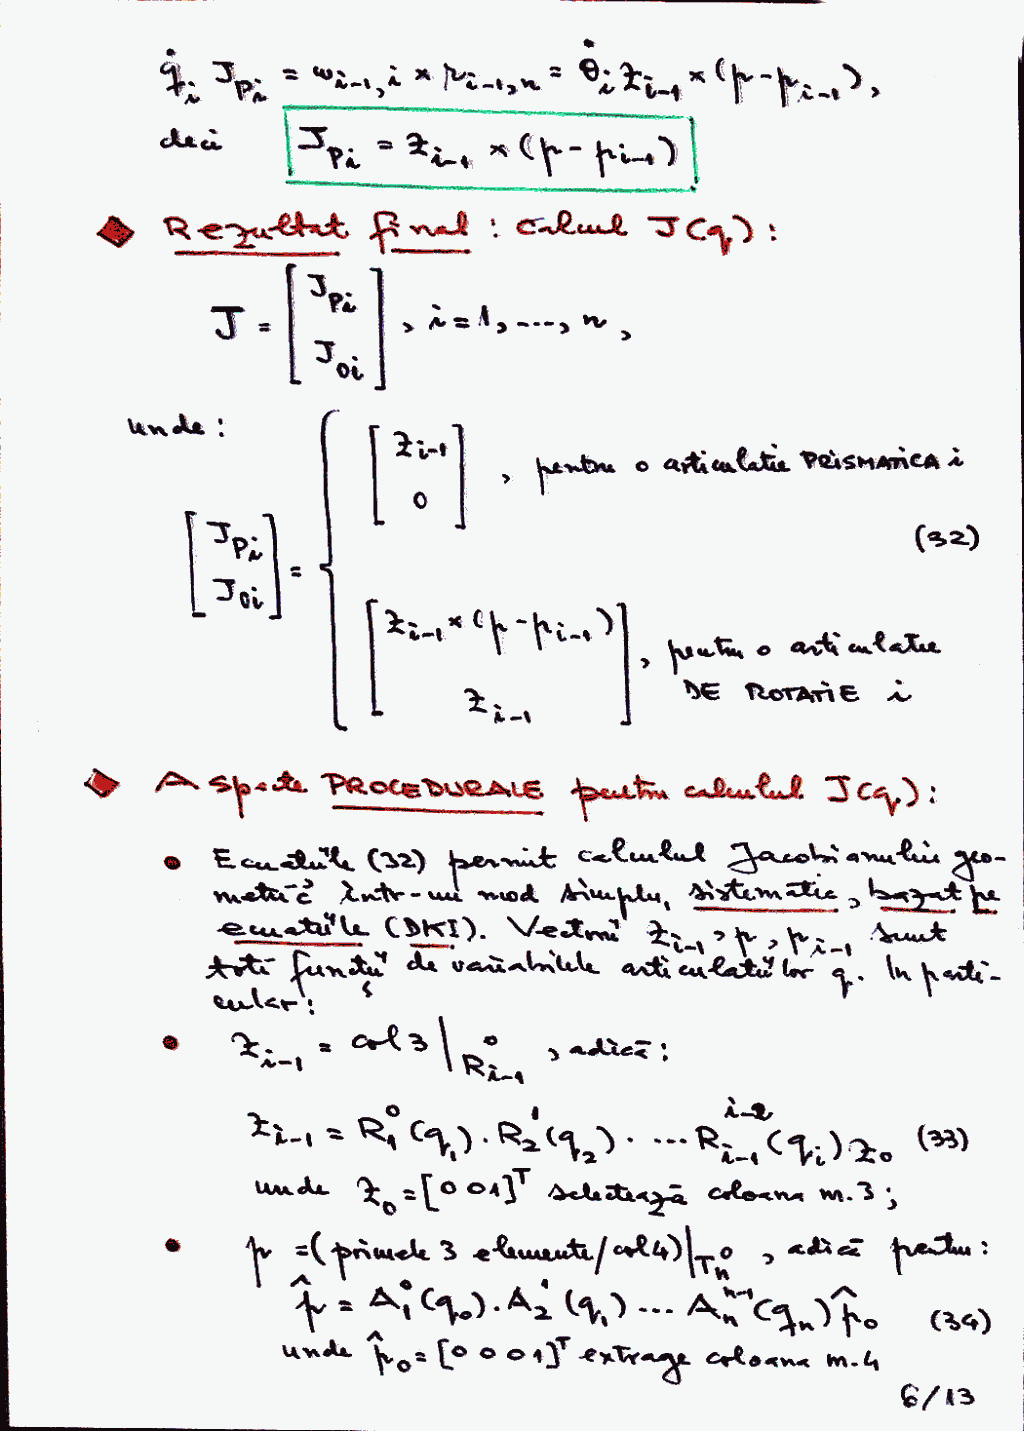 q̇ᵢ J_Pi = ω_i-1,i × r_i-1,n = θ̇ᵢ z_i-1 × (p - p_i-1),
deci J_Pi = z_i-1 × (p - p_i-1)
◆ Rezultat final : calcul J(q) :
J = [ J_Pi ; J_Oi ] , i = 1, ..., n ,
unde :
[ J_Pi ; J_Oi ] = { [ z_i-1 ; 0 ] , pentru o articulatie PRISMATICA i
(32)
[ z_i-1 × (p - p_i-1) ; z_i-1 ] , pentru o articulatie
DE ROTATIE i
◆ Aspecte PROCEDURALE pentru calculul J(q) :
• Ecuatiile (32) permit calculul Jacobianului geo-
metric într-un mod simplu, sistematic, bazat pe
ecuatiile (DKI). Vectorii z_i-1, p, p_i-1 sunt
toti funcții de variabilele articulatiilor q. In parti-
cular :
• z_i-1 = col 3 | R_i-1^0 , adică :
z_i-1 = R_1^0 (q_1) . R_2^1 (q_2) . ... R_i-1^i-2 (q_i) z_0 (33)
unde z_0 = [0 0 1]^T selectează coloana nr. 3 ;
• p = (primele 3 elemente/col 4) | T_n^0 , adică pentru :
p̂ = A_1^0 (q_0) . A_2^1 (q_1) ... A_n^n-1 (q_n) p̂_0 (34)
unde p̂_0 = [0 0 0 1]^T extrage coloana nr. 4
6/13